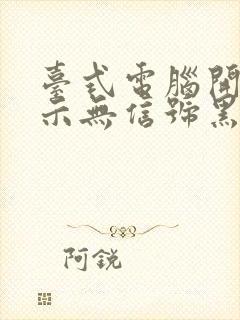 臺式電腦開
示無信號黑
阿銳